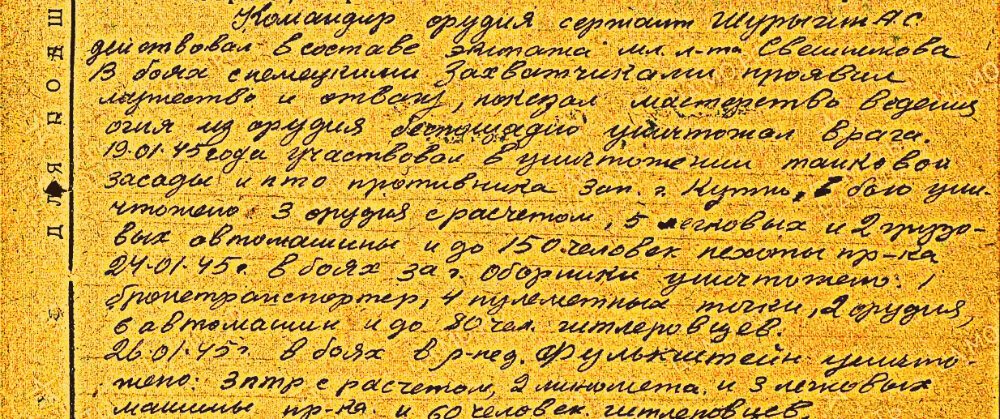 Командир орудия сержант Шурыгин А С
действовал в составе экипажа мл. л-та Свешникова
В боях с немецкими захватчиками проявил
мужество и отвагу, показал мастерство ведения
огня из орудия беспощадно уничтожал врага.
19.01.45 года участвовал в уничтожении танковой
засады и пто противника зап. г. Кутно, в бою уни-
чтожено 3 орудия с расчетом, 5 легковых и 2 грузо-
вых автомашины и до 150 человек пехоты пр-ка
24.01.45г. в боях за г. Оборники уничтожено: 1
бронетранспортер, 4 пулеметных точки, 2 орудия,
6 автомашин и до 80 чел. гитлеровцев.
26.01.45г. в боях в р-не д. Фулькштейн уничто-
жено: 3 птр с расчетом, 2 миномета и 3 легковых
машины пр-ка и 60 человек гитлеровцев